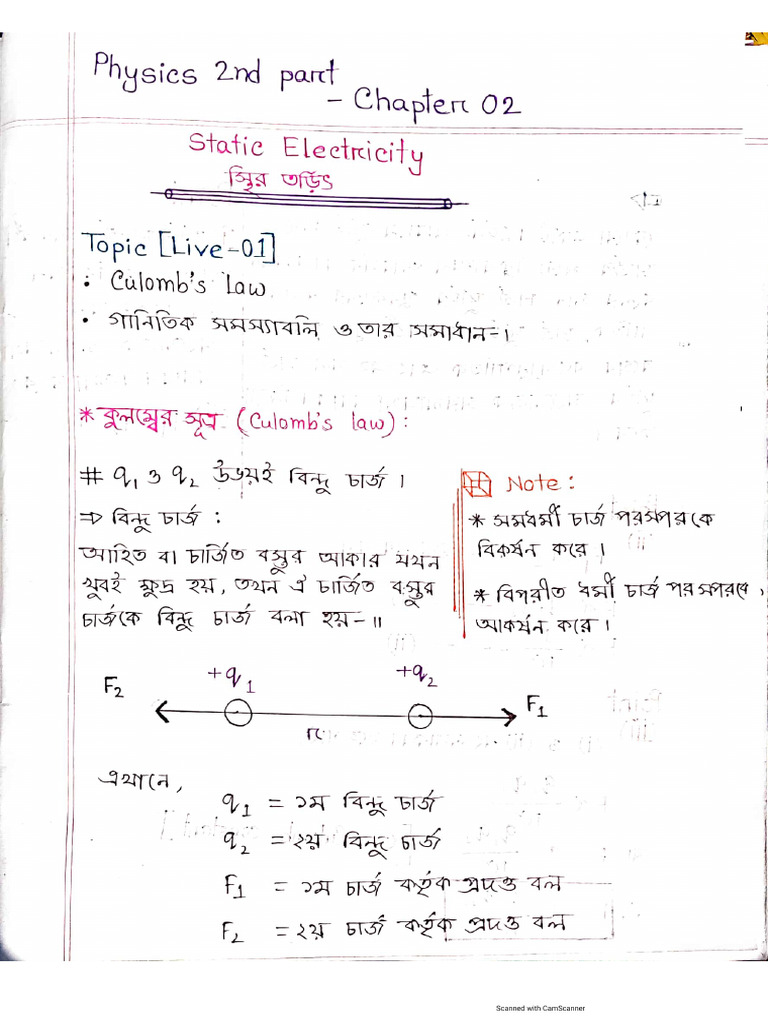 Physics 2nd part
- Chapter 02
Static Electricity
স্থির তড়িৎ
Topic [Live-01]
• Culomb's Law
• গানিতিক সমস্যাবলি ও তার সমাধান-।
* কুলম্বের সূত্র (Culomb's law):
# q₁ ও q₂ উভয়ই বিন্দু চার্জ।
⇒ বিন্দু চার্জ:
আহিত বা চার্জিত বস্তুর আকার যখন
খুবই ক্ষুদ্র হয়, তখন ঐ চার্জিত বস্তুর
চার্জকে বিন্দু চার্জ বলা হয়-॥
Note:
* সমধর্মী চার্জ পরস্পরকে
বিকর্ষন করে।
* বিপরীত ধর্মী চার্জ পরস্পরকে,
আকর্ষন করে।
F₂ +q₁ +q₂ F₁
r
এখানে,
q₁ = ১ম বিন্দু চার্জ
q₂ = ২য় বিন্দু চার্জ
F₁ = ১ম চার্জ কর্তৃক প্রদত্ত বল
F₂ = ২য় চার্জ কর্তৃক প্রদত্ত বল
Scanned with CamScanner